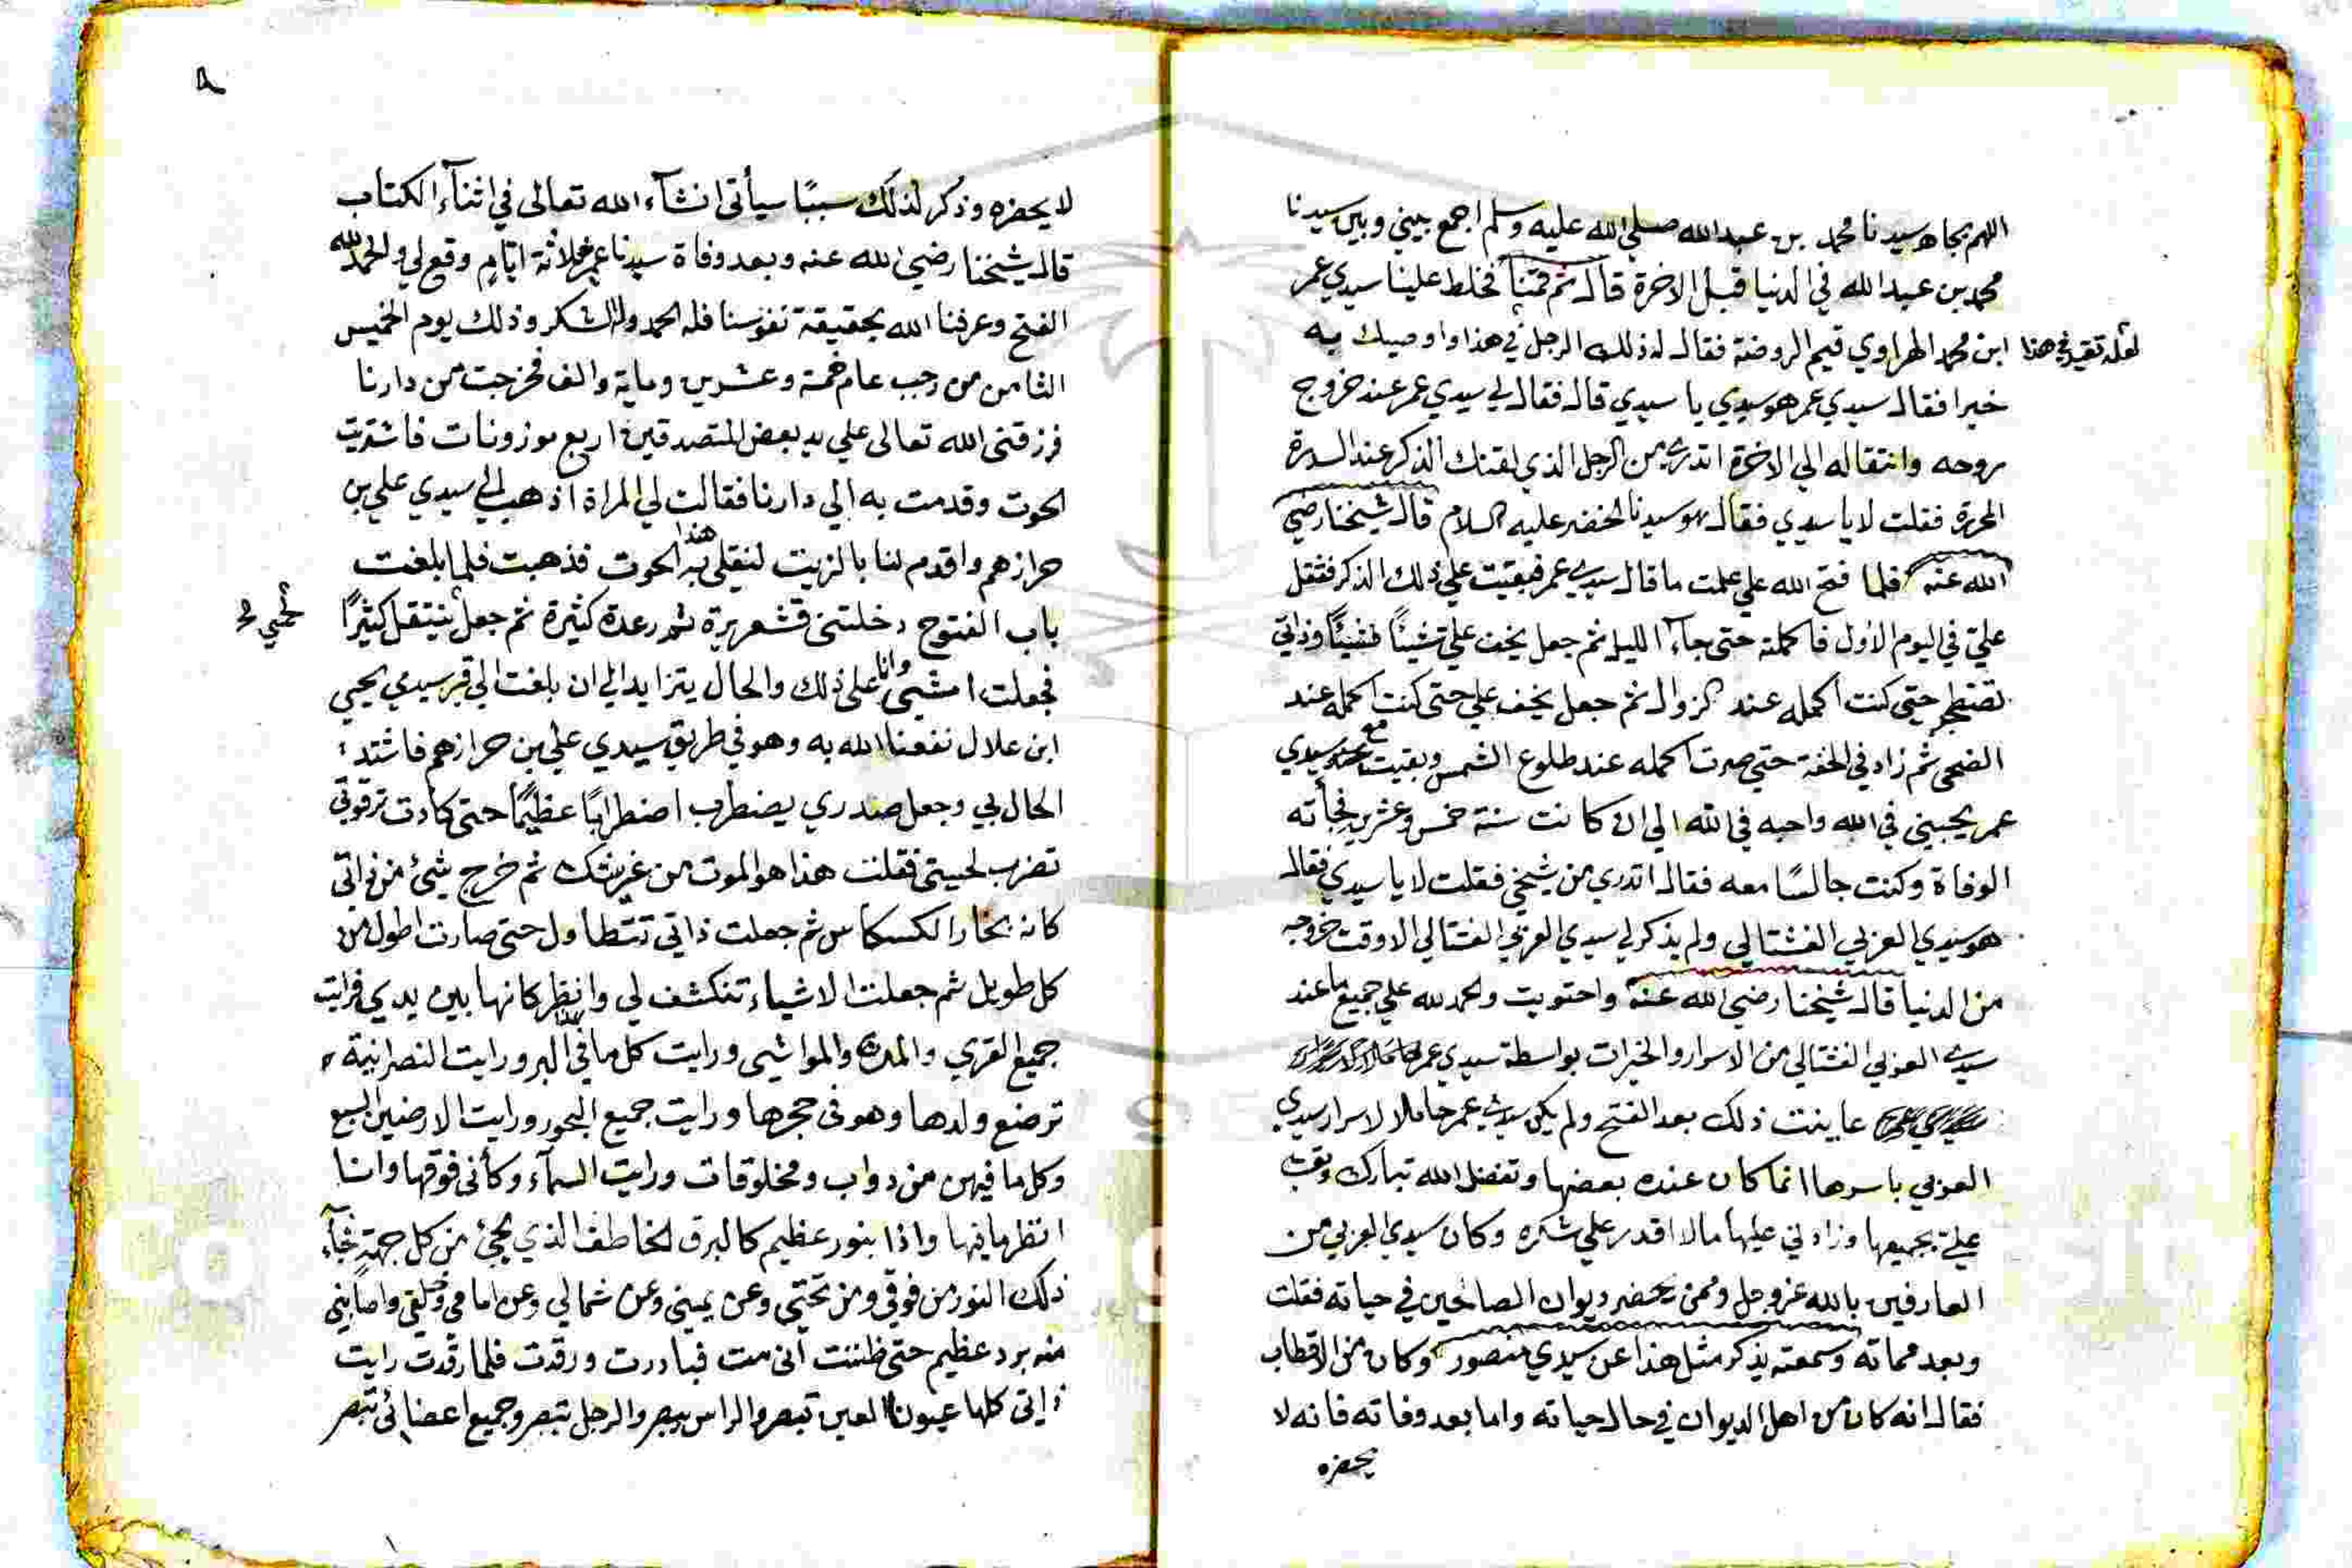 اللهم بجاه سيدنا محمد بن عبدالله صلي الله عليه وسلم اجمع بيني وبين سيدنا
محمد بن عبدالله في الدنيا قبل الاخرة قال ثم قمنا فخلط علينا سيدي عمر
ابن محمد الهراوي قيم الروضة فقال له ذلك الرجل في هذا واوصيك به
لعله تقيد في هذا
خيرا فقال سيدي عمر هو سيدي يا سيدي قال فقال لي سيدي عمر عند خروج
روحه وانتقاله الي الاخرة اتدري من الرجل الذي لقنك الذكر عند السدرة
المحررة فقلت لا يا سيدي فقال هو سيدنا الخضر عليه السلام قال شيخنا رضي
الله عنه فلما فتح الله علي علمت ما قال سيدي عمر فبقيت علي ذلك الذكر فثقل
علي في اليوم الاول فما كملته حتي جاء الليل ثم جعل يخف علي شيئا فشيئا وذاتي
تصطلح حتي كنت اكمله عند الزوال ثم جعل يخف علي حتي كنت اكمله عند
الضحي ثم زاد في الخفة حتي صرت اكمله عند طلوع الشمس وبقيت مع سيدي
عمر يحبني في الله واحبه في الله الي ان كانت سنة خمس وعشرين فجأته
الوفاة وكنت جالسًا معه فقال اتدري من شيخي فقلت لا يا سيدي فقال
هو سيدي العربي الفشتالي ولم يذكر لي سيدي العربي الفشتالي الا وقت خروجه
من الدنيا قال شيخنا رضي الله عنه واحتويت والحمد لله علي جميع ما عند
سيدي العربي الفشتالي من الاسرار والخيرات بواسطة سيدي عمر
عاينت ذلك بعد الفتح ولم يكن سيدي عمر حاملا لاسرار سيدي
العربي باسرها انما كان عنده بعضها وتفضل الله تبارك وتعالي
علي بجميعها وزادني عليها مالا اقدر علي شكره وكان سيدي العربي من
العارفين بالله عز وجل وممن يحضر ديوان الصالحين في حياته فقلت
وبعد مماته وسمعته يذكر مثل هذا عن سيدي منصور وكان من الاقطاب
فقال انه كان من اهل الديوان في حال حياته واما بعد وفاته فانه لا
يحضره
لا يحضره وذكر لذلك سببًا سيأتي انشآء الله تعالى في اثنآء الكتاب
قال شيخنا رضي الله عنه وبعد وفاة سيدنا عمر بثلاثة ايام وقع لي والحمد لله
الفتح وعرفنا الله بحقيقة نفوسنا فله الحمد وله الشكر وذلك يوم الخميس
الثامن من رجب عام خمة وعشرين وماية والف فخرجت من دارنا
فرزقني الله تعالى علي يد بعض المتصدقين اربع موزونات فاشتريت
الحوت وقدمت به الي دارنا فقالت لي المراة اذهب الي سيدي علي بن
حرازهم واقدم لنا بالزيت لنقلي به هذا الحوت فذهبت فلما بلغت
باب الفتوح دخلتني قشعريرة ثم رعدة كثيرة ثم جعل ينتقل كثيرًا
لحمي
فجعلت امشي وانا على ذلك والحال يتزايد الي ان بلغت الي قبر سيدي يحيي
ابن علال نفعنا الله به وهو في طريق سيدي علي بن حرازهم فاشتد
الحال بي وجعل صدري يضطرب اضطرابًا عظيمًا حتى كادت ترقوتي
تضرب لحيتي فقلت هذا هو الموت من غير شك ثم خرج شيء من ذاتي
كانه بخار الكسكاس ثم جعلت ذاتي تتطاول حتي صارت اطول من
كل طويل ثم جعلت الاشياء تنكشف لي وانظر كانها بين يدي فرايت
جميع القري والمدن والمواشي ورايت كل ما في هذا البر ورايت النصرانية
ترضع ولدها وهو في حجرها ورايت جميع البحور ورايت الارضين السبع
وكل ما فيهن من دواب ومخلوقات ورايت السمآء وكأني فوقها وانا
انظر ما فيها واذا بنور عظيم كالبرق الخاطف الذي يجيء من كل جهة فجآء
ذلك النور من فوقي ومن تحتي وعن يميني وعن شمالي وعن امامي وخلفي واصابني
منه برد عظيم حتي ظننت اني مت فبادرت ورقدت فلما رقدت رايت
ذاتي كلها عيونا العين تبصر والراس يبصر والرجل تبصر وجميع اعضائي تبصر